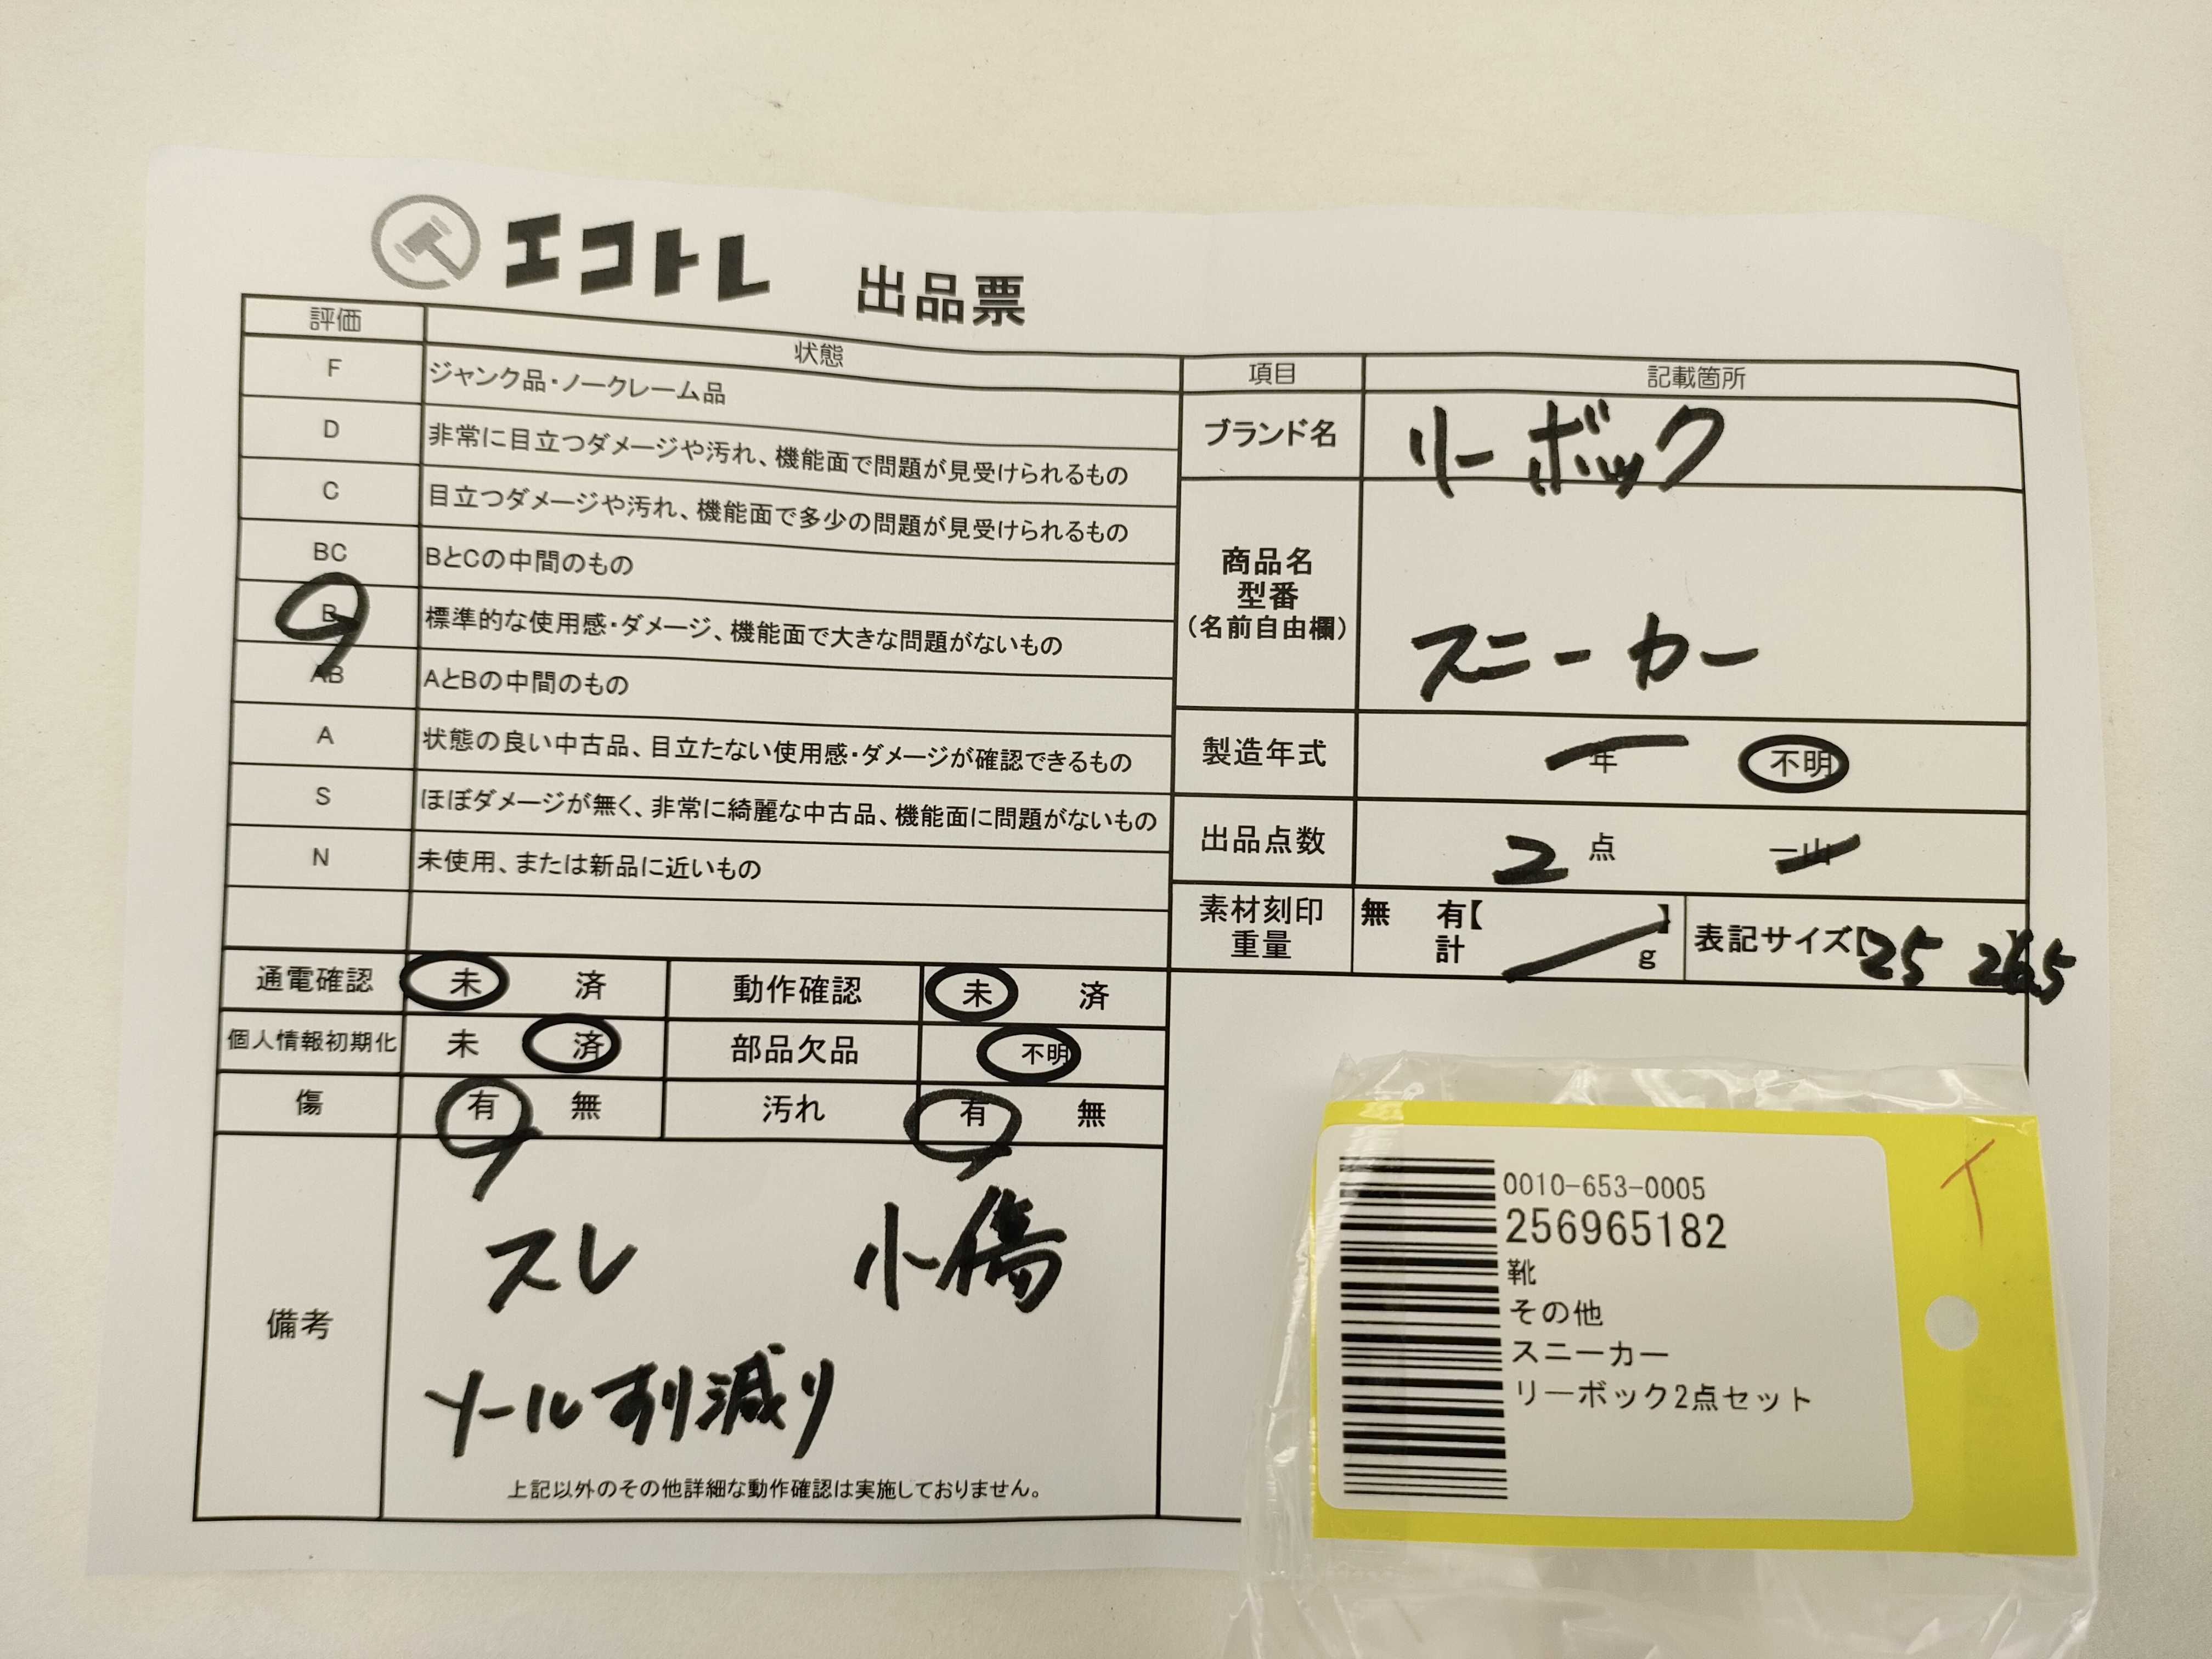 エコトレ 出品票
評価 状態
F ジャンク品・ノークレーム品
D 非常に目立つダメージや汚れ、機能面で問題が見受けられるもの
C 目立つダメージや汚れ、機能面で多少の問題が見受けられるもの
BC BとCの中間のもの
B 標準的な使用感・ダメージ、機能面で大きな問題がないもの
AB AとBの中間のもの
A 状態の良い中古品、目立たない使用感・ダメージが確認できるもの
S ほぼダメージが無く、非常に綺麗な中古品、機能面に問題がないもの
N 未使用、または新品に近いもの
通電確認 未 済 動作確認 未 済
個人情報初期化 未 済 部品欠品 不明
傷 有 無 汚れ 有 無
備考
スレ 小傷
ソール削減り
上記以外のその他詳細な動作確認は実施しておりません。
項目 記載箇所
ブランド名 リーボック
商品名
型番
(名前自由欄)
スニーカー
製造年式 年 不明
出品点数 2 点 一山
素材刻印 無 有【 】
重量 計 g
表記サイズ【25 26.5
0010-653-0005
256965182
靴
その他
スニーカー
リーボック2点セット
イ